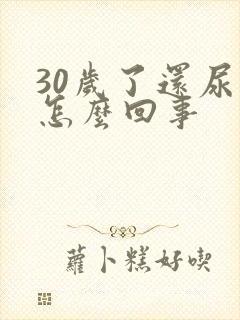 30歲了還尿
怎麼回事
蘿卜糕好喫